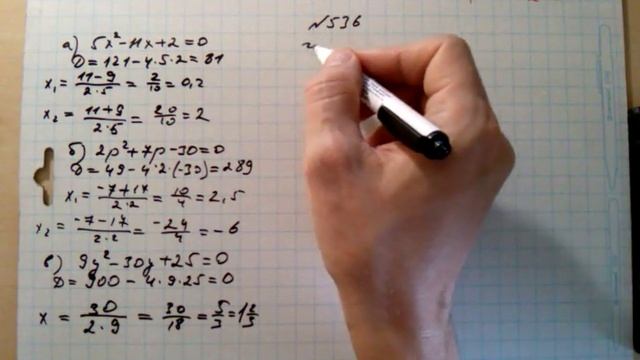 а) 5x² - 11x + 2 = 0
D = 121 - 4·5·2 = 81
x₁ = (11-9)/(2·5) = 2/10 = 0,2
x₂ = (11+9)/(2·5) = 20/10 = 2
б) 2p² + 7p - 30 = 0
D = 49 - 4·2·(-30) = 289
x₁ = (-7+17)/(2·2) = 10/4 = 2,5
x₂ = (-7-17)/(2·2) = -24/4 = -6
в) 9y² - 30y + 25 = 0
D = 900 - 4·9·25 = 0
x = 30/(2·9) = 30/18 = 5/3 = 1 2/3
№536